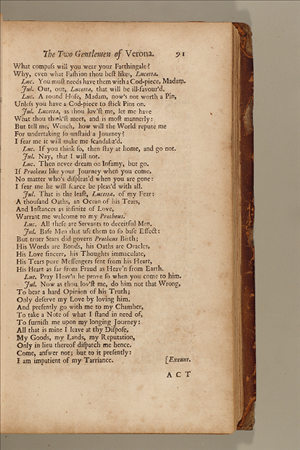 The Two Gentlemen of Verona. 91
What compass will you wear your Farthingale?
Why, even what Fashion thou best like, Lucetta.
Luc. You must needs have them with a Cod-piece, Madam.
Jul. Out, out, Lucetta, that will be ill-favour'd.
Luc. A round Hose, Madam, now's not worth a Pin,
Unless you have a Cod-piece to stick Pins on.
Jul. Lucetta, as thou lov'st me, let me have
What thou think'st meet, and is most mannerly:
But tell me, Wench, how will the World repute me
For undertaking so unstaid a Journey?
I fear me it will make me scandaliz'd.
Luc. If you think so, then stay at home, and go not.
Jul. Nay, that I will not.
Luc. Then never dream on Infamy, but go.
If Protheus like your Journey when you come,
No matter who's displeas'd when you are gone:
I fear me he will scarce be pleas'd with all.
Jul. That is the least, Lucetta, of my Fear:
A thousand Oaths, an Ocean of his Tears,
And Instances as infinite of Love,
Warrant me welcome to my Protheus.
Luc. All these are Servants to deceitful Men.
Jul. Base Men that use them to so base Effect:
But truer Stars did govern Protheus Birth;
His Words are Bonds, his Oaths are Oracles,
His Love sincere, his Thoughts immaculate,
His Tears pure Messengers sent from his Heart,
His Heart as far from Fraud as Heav'n from Earth.
Luc. Pray Heav'n he prove so when you come to him.
Jul. Now as thou lov'st me, do him not that Wrong,
To bear a hard Opinion of his Truth;
Only deserve my Love by loving him,
And presently go with me to my Chamber,
To take a Note of what I stand in need of,
To furnish me upon my longing Journey:
All that is mine I leave at thy Dispose,
My Goods, my Lands, my Reputation,
Only in lieu thereof dispatch me hence.
Come, answer not; but to it presently:
I am impatient of my Tarriance. [Exeunt.
ACT